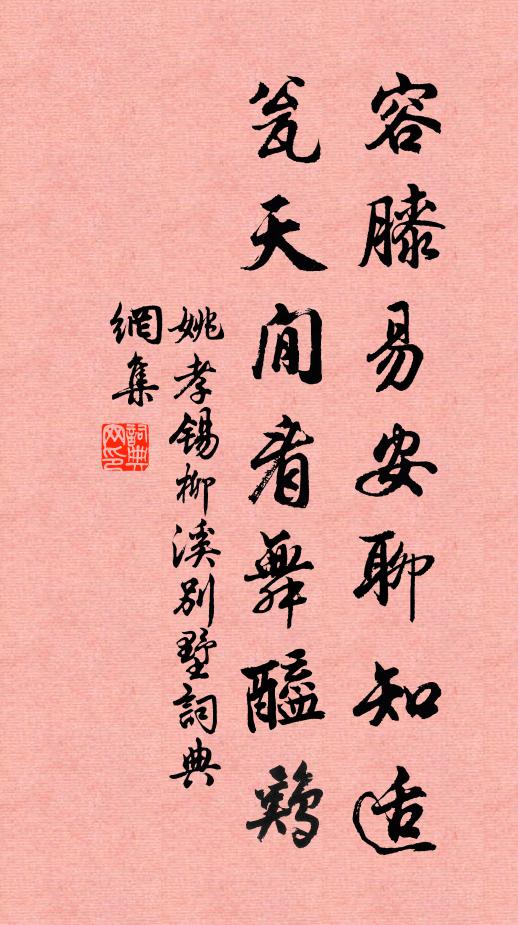 容膝易安聊知适
瓮天闲看舞醯鸡
姚孝锡柳溪别墅词典
网集
词典网印